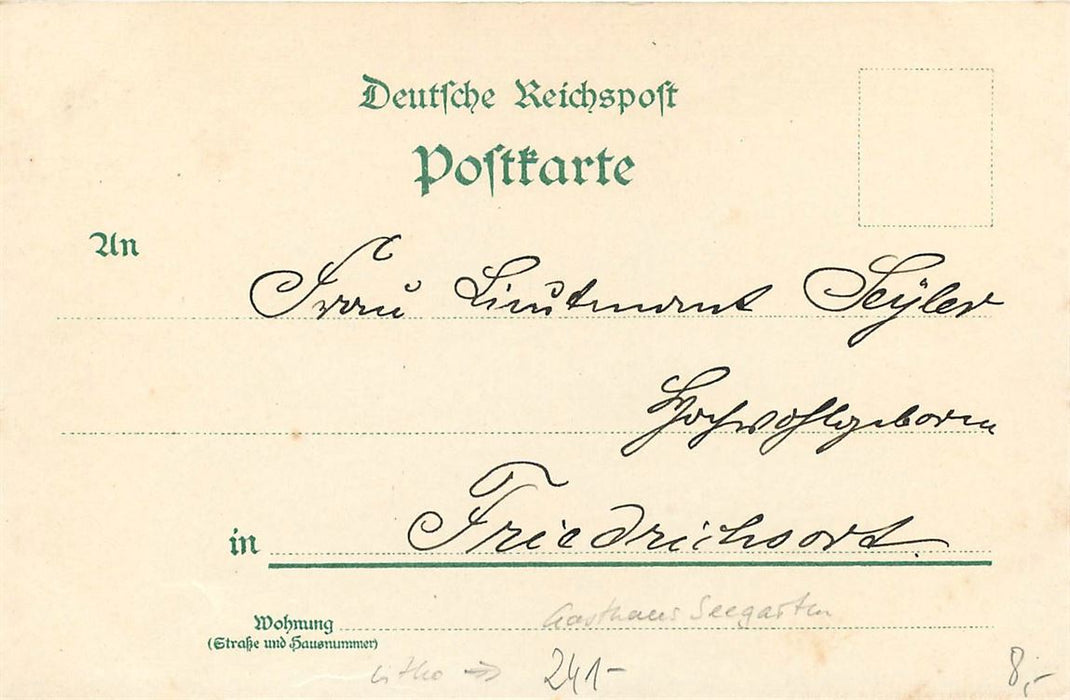 Deutsche Reichspost
Postkarte
An
Frau Lieutenant Seÿler
Hochwohlgeboren
in Friedrichsort.
Wohnung
(Straße und Hausnummer)
Gasthaus Seegarten
Litho → 24,- 8,-